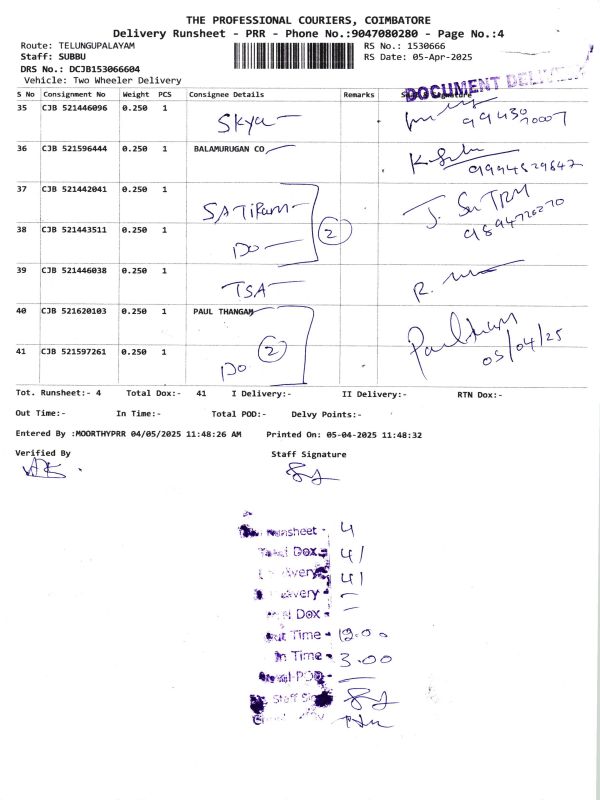 THE PROFESSIONAL COURIERS, COIMBATORE
Delivery Runsheet - PRR - Phone No.:9047080280 - Page No.:4
Route: TELUNGUPALAYAM RS No.: 1530666
Staff: SUBBU RS Date: 05-Apr-2025
DRS No.: DCJB153066604
Vehicle: Two Wheeler Delivery
DOCUMENT
S No Consignment No Weight PCS Consignee Details Remarks
35 CJB 521446096 0.250 1 Skya 99430
70007
36 CJB 521596444 0.250 1 BALAMURUGAN CO
9994529647
37 CJB 521442041 0.250 1
9894720270
38 CJB 521443511 0.250 1 Do 2
39 CJB 521446038 0.250 1 TSA
40 CJB 521620103 0.250 1 PAUL THANGAM
05/04/25
41 CJB 521597261 0.250 1 Do 2
Tot. Runsheet:- 4 Total Dox:- 41 I Delivery:- II Delivery:- RTN Dox:-
Out Time:- In Time:- Total POD:- Delvy Points:-
Entered By :MOORTHYPRR 04/05/2025 11:48:26 AM Printed On: 05-04-2025 11:48:32
Verified By Staff Signature
Runsheet - 4
Total Dox - 41
41
Dox -
Out Time -
In Time - 3.00
POD -
Staff